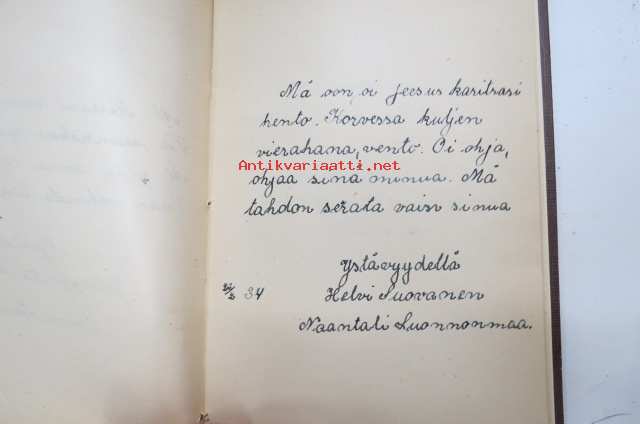 Mä oon, oi Jeesus karitsasi
hento. Korvessa kuljen
vierahana, vento. Oi ohja,
Antikvariaatti.net
ohjaa sinä minua. Mä
tahdon seurata vain sinua
Ystävyydellä
34 Helvi Suovanen
Naantali Luonnonmaa.